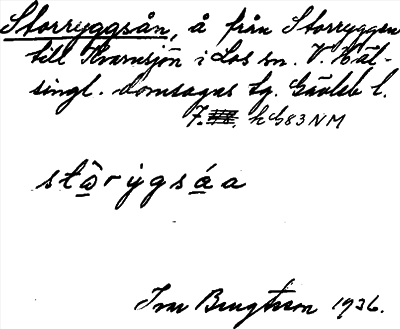 Storryggsån, å från Storryggen
till Kvarnsjön i Los sn. V. Häl-
singl. domsagas tg. Gävleb l.
7. h G83NM
stårygsáa
Ivar Bengtsson 1936.